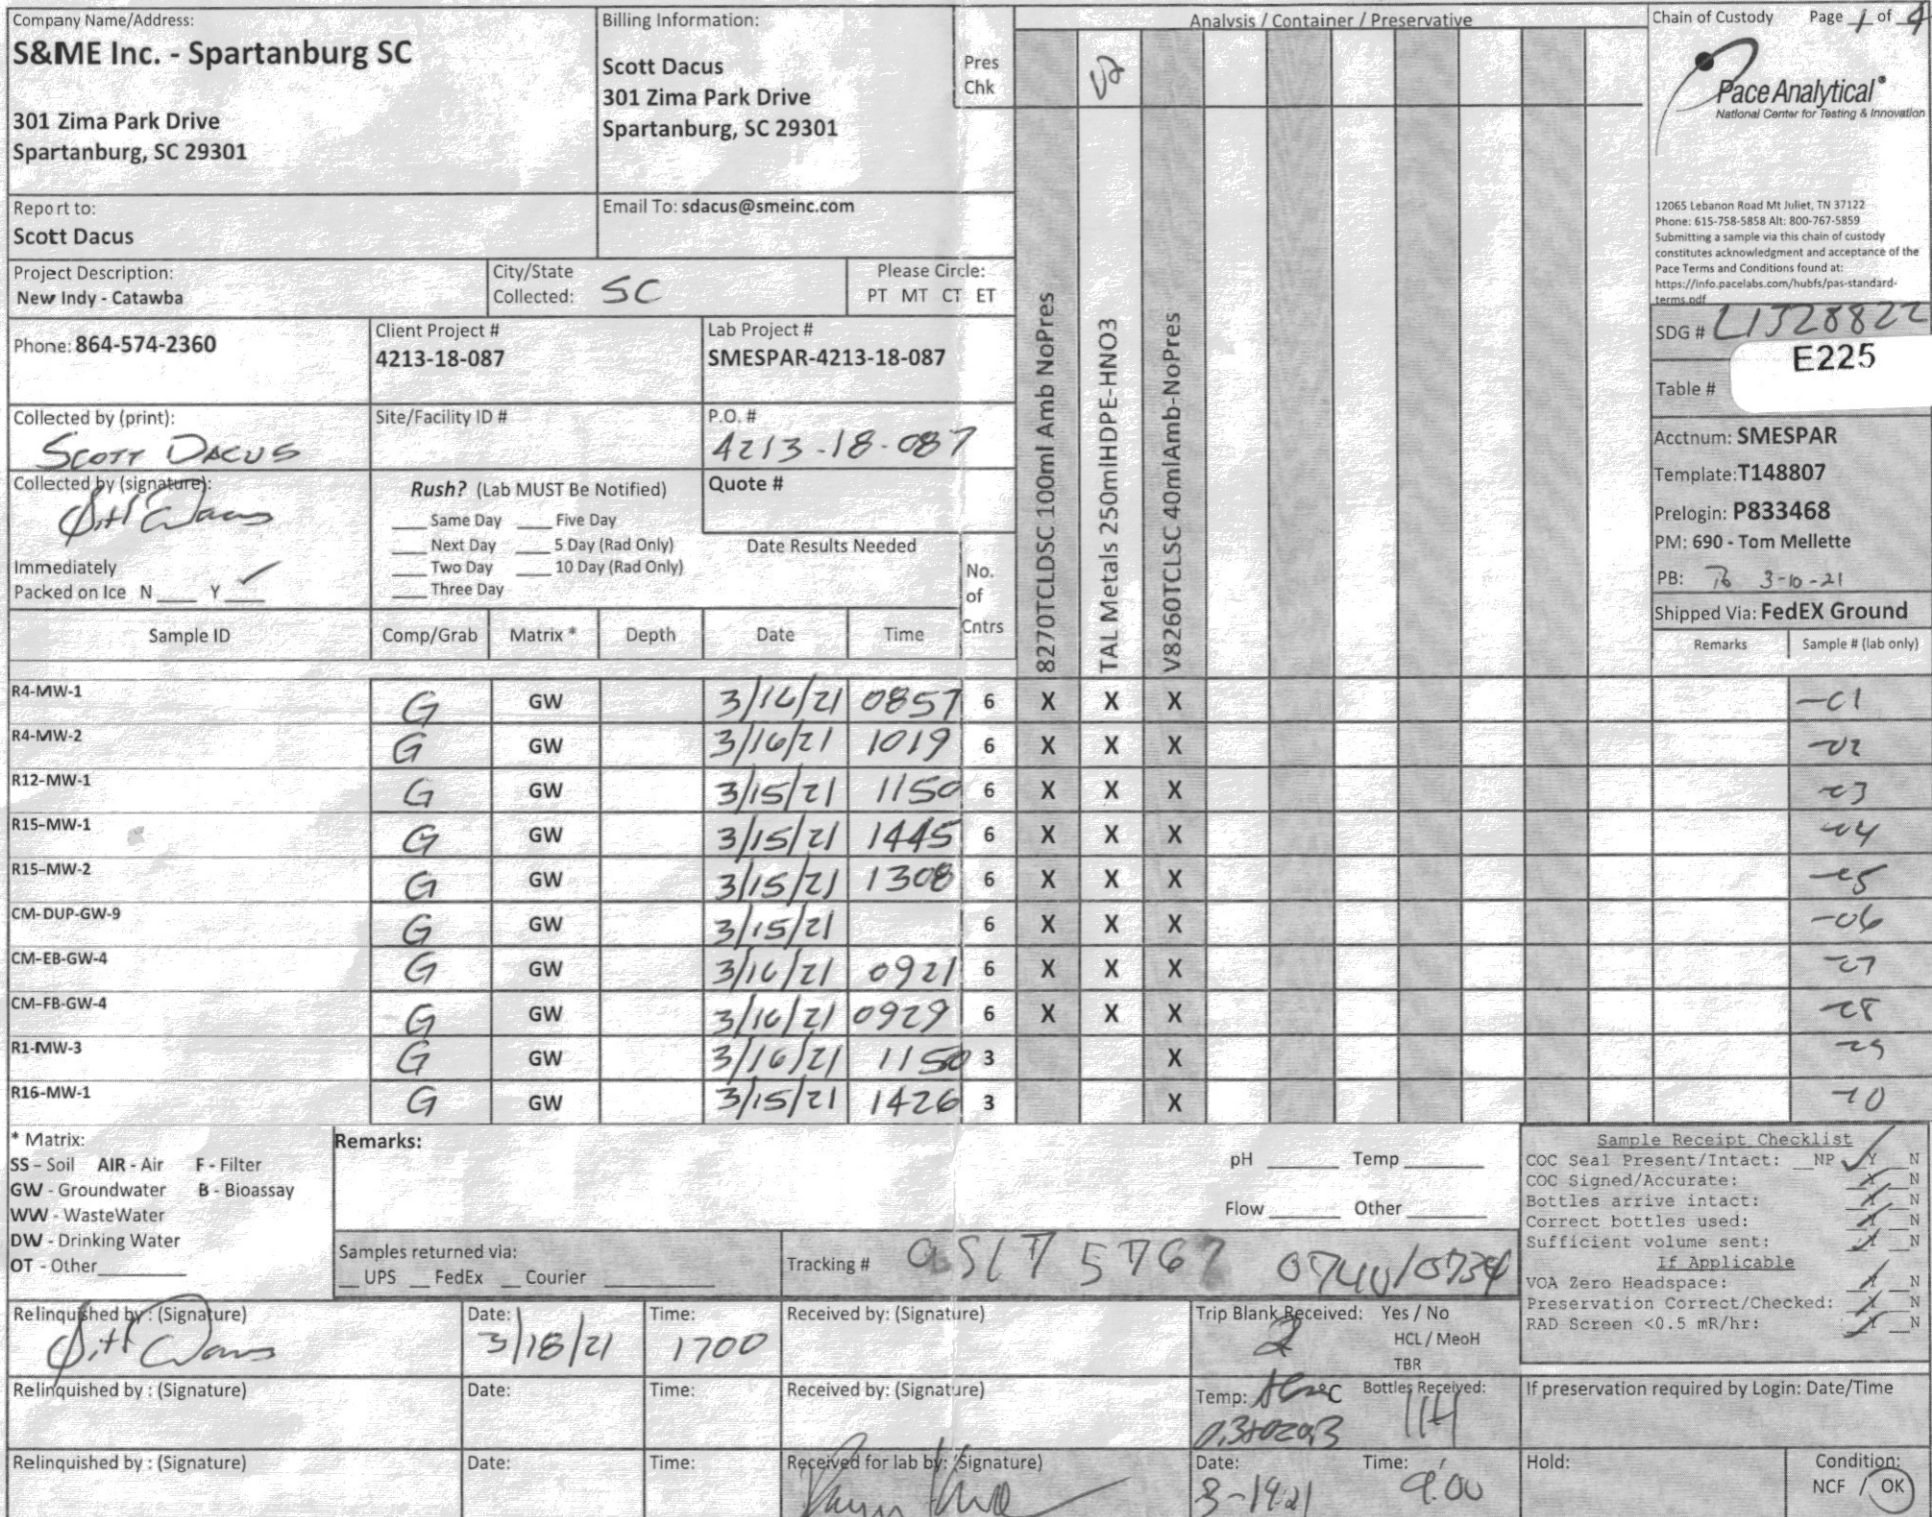 Company Name/Address:
S&ME Inc. - Spartanburg SC
301 Zima Park Drive
Spartanburg, SC 29301
Billing Information:
Scott Dacus
301 Zima Park Drive
Spartanburg, SC 29301
Pres
Chk
Analysis / Container / Preservative
V2
Chain of Custody Page 1 of 4
Pace Analytical®
National Center for Testing & Innovation
12065 Lebanon Road Mt Juliet, TN 37122
Phone: 615-758-5858 Alt: 800-767-5859
Submitting a sample via this chain of custody
constitutes acknowledgment and acceptance of the
Pace Terms and Conditions found at:
https://info.pacelabs.com/hubfs/pas-standard-
terms.pdf
Report to:
Scott Dacus
Email To: sdacus@smeinc.com
Project Description:
New Indy - Catawba
City/State
Collected: SC
Please Circle:
PT MT CT ET
Phone: 864-574-2360
Client Project #
4213-18-087
Lab Project #
SMESPAR-4213-18-087
SDG # L1328822
E225
Table #
Collected by (print):
SCOTT DACUS
Site/Facility ID #
P.O. #
4213-18-087
Acctnum: SMESPAR
Template: T148807
Prelogin: P833468
PM: 690 - Tom Mellette
PB: 3-10-21
Shipped Via: FedEX Ground
Collected by (signature):
Immediately
Packed on Ice N ____ Y ____
Rush? (Lab MUST Be Notified)
____ Same Day ____ Five Day
____ Next Day ____ 5 Day (Rad Only)
____ Two Day ____ 10 Day (Rad Only)
____ Three Day
Quote #
Date Results Needed
No.
of
Cntrs
8270TCLDSC 100ml Amb NoPres
TAL Metals 250mlHDPE-HNO3
V8260TCLSC 40mlAmb-NoPres
Sample ID Comp/Grab Matrix * Depth Date Time Remarks Sample # (lab only)
R4-MW-1 G GW 3/16/21 0857 6 X X X -01
R4-MW-2 G GW 3/16/21 1019 6 X X X -02
R12-MW-1 G GW 3/15/21 1150 6 X X X -03
R15-MW-1 G GW 3/15/21 1445 6 X X X -04
R15-MW-2 G GW 3/15/21 1308 6 X X X -05
CM-DUP-GW-9 G GW 3/15/21 6 X X X -06
CM-EB-GW-4 G GW 3/16/21 0921 6 X X X -07
CM-FB-GW-4 G GW 3/16/21 0929 6 X X X -08
R1-MW-3 G GW 3/16/21 1150 3 X -09
R16-MW-1 G GW 3/15/21 1426 3 X -10
* Matrix:
SS - Soil AIR - Air F - Filter
GW - Groundwater B - Bioassay
WW - WasteWater
DW - Drinking Water
OT - Other
Remarks:
pH ____ Temp ____
Flow ____ Other ____
Samples returned via:
__ UPS __ FedEx __ Courier
Tracking # 5767 0740/0734
Sample Receipt Checklist
COC Seal Present/Intact: __NP Y N
COC Signed/Accurate: Y N
Bottles arrive intact: Y N
Correct bottles used: Y N
Sufficient volume sent: Y N
If Applicable
VOA Zero Headspace: Y N
Preservation Correct/Checked: Y N
RAD Screen <0.5 mR/hr: Y N
Relinquished by : (Signature)
Date: 3/18/21
Time: 1700
Received by: (Signature)
Trip Blank Received: Yes / No
2
HCL / MeoH
TBR
Relinquished by : (Signature)
Date:
Time:
Received by: (Signature)
Temp: °C
Bottles Received:
If preservation required by Login: Date/Time
Relinquished by : (Signature)
Date:
Time:
Received for lab by: (Signature)
Date: 3-19-21
Time: 9:00
Hold:
Condition:
NCF / OK